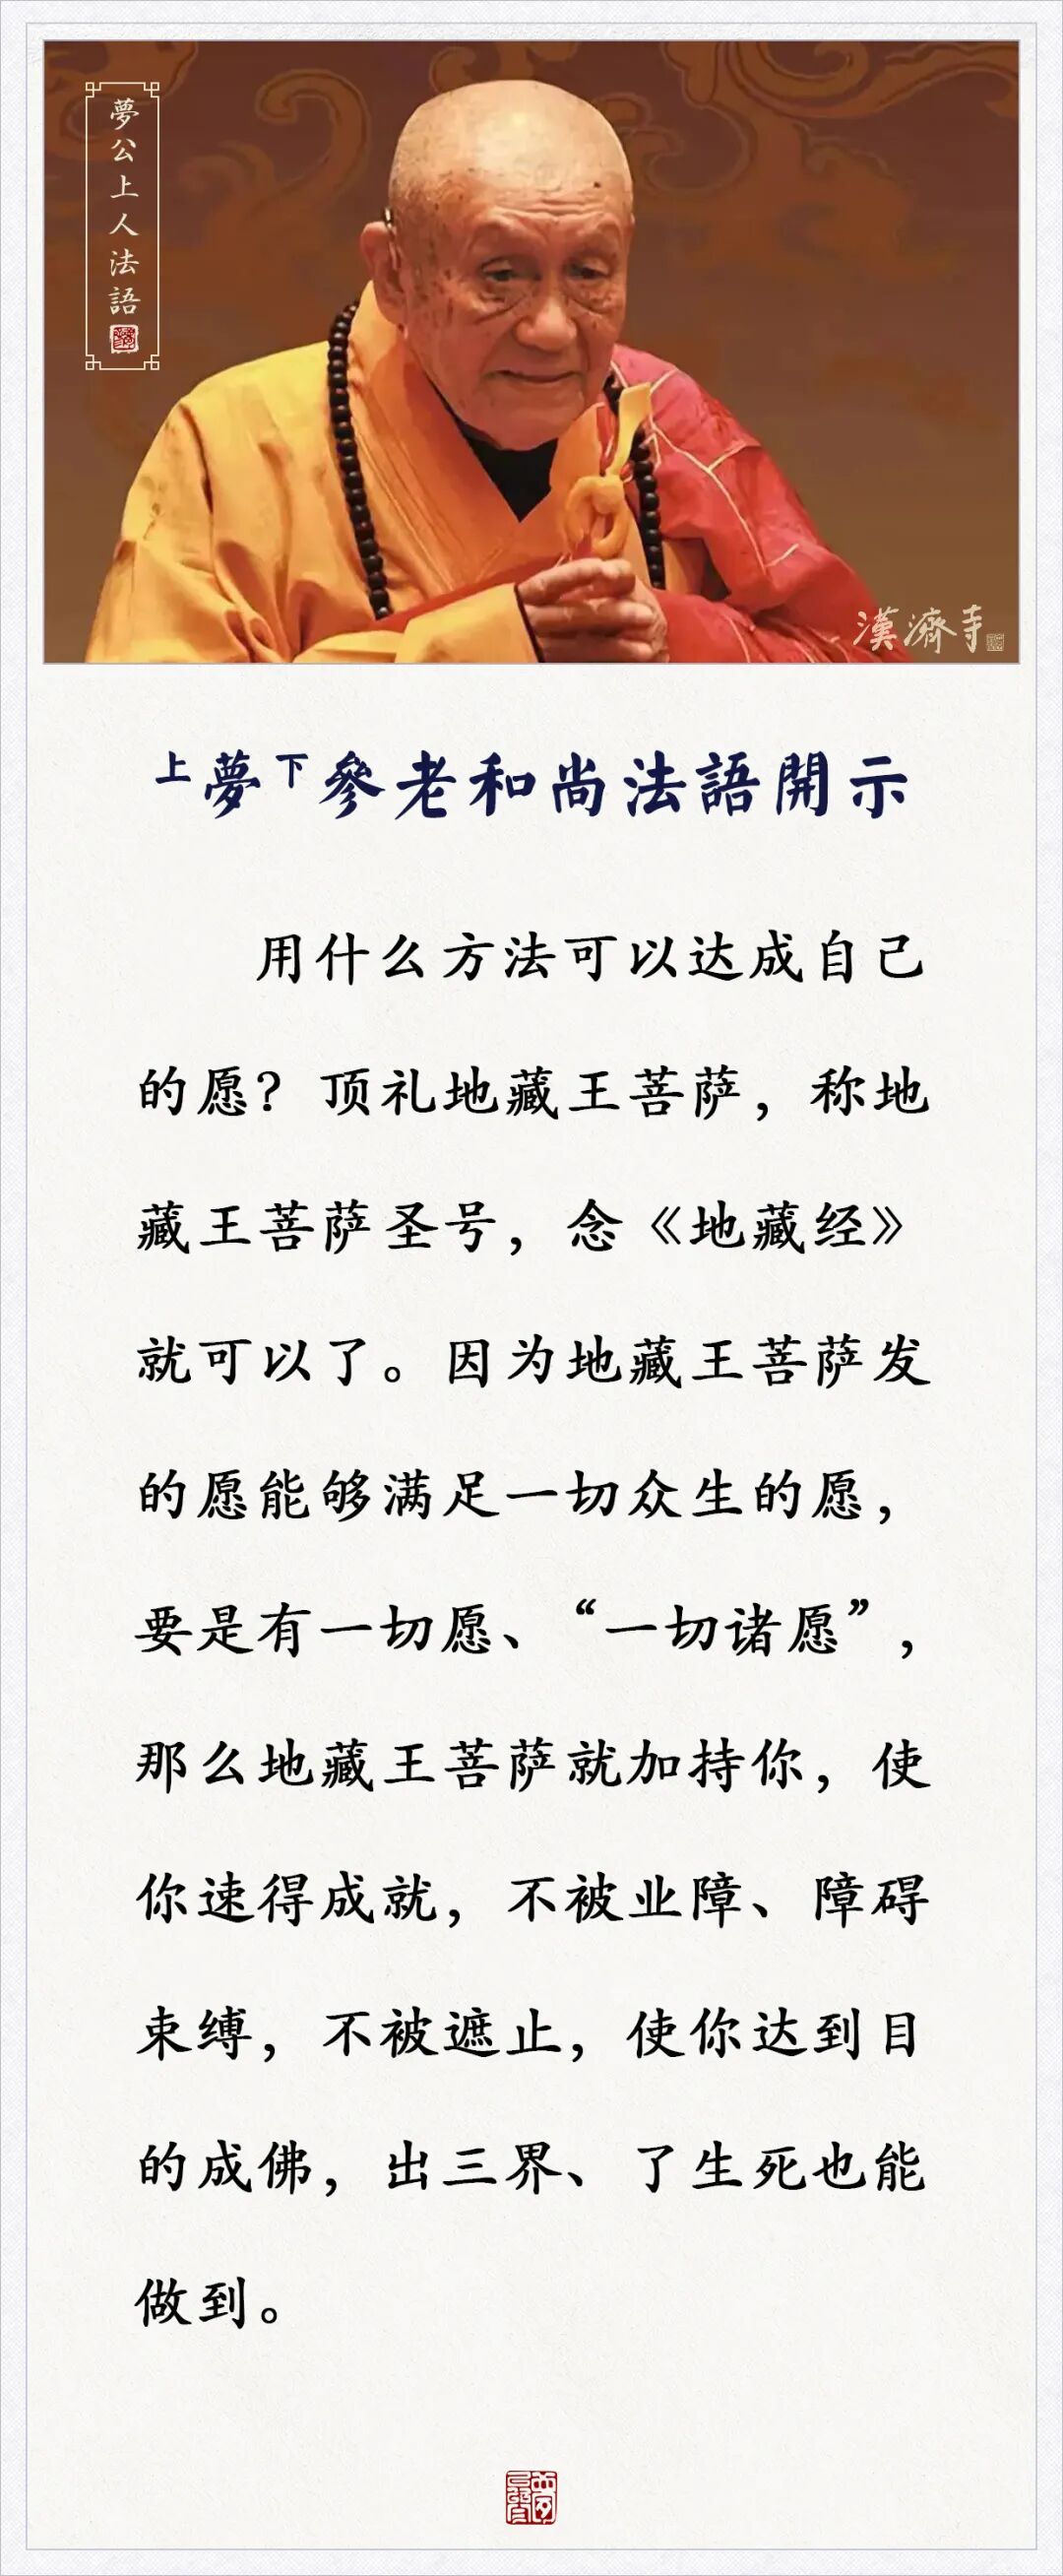 夢公上人法語
漢濟寺
上夢下參老和尚法語開示
用什么方法可以达成自己
的愿？顶礼地藏王菩萨，称地
藏王菩萨圣号，念《地藏经》
就可以了。因为地藏王菩萨发
的愿能够满足一切众生的愿，
要是有一切愿、“一切诸愿”，
那么地藏王菩萨就加持你，使
你速得成就，不被业障、障碍
束缚，不被遮止，使你达到目
的成佛，出三界、了生死也能
做到。